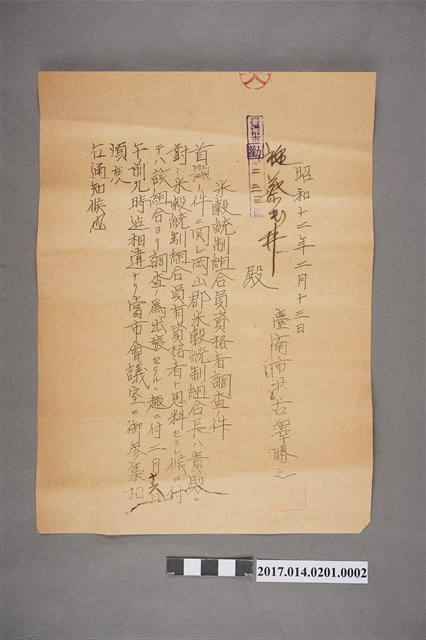 昭和十二年二月十三日
臺南市尹古澤勝之
殿
米穀統制組合員資格者調査ノ件
首題ノ件ニ関シ岡山郡米穀統制組合長ハ貴殿ニ
對シ米穀統制組合員有資格者ト思料セラレ候ニ付
テハ該組合ヨリ調査ノ為出張セラルヽ趣ニ付二月十六日
午前九時迄相違ナク當市會議室ニ御参集相
頃度
右通知候也
2017.014.0201.0002